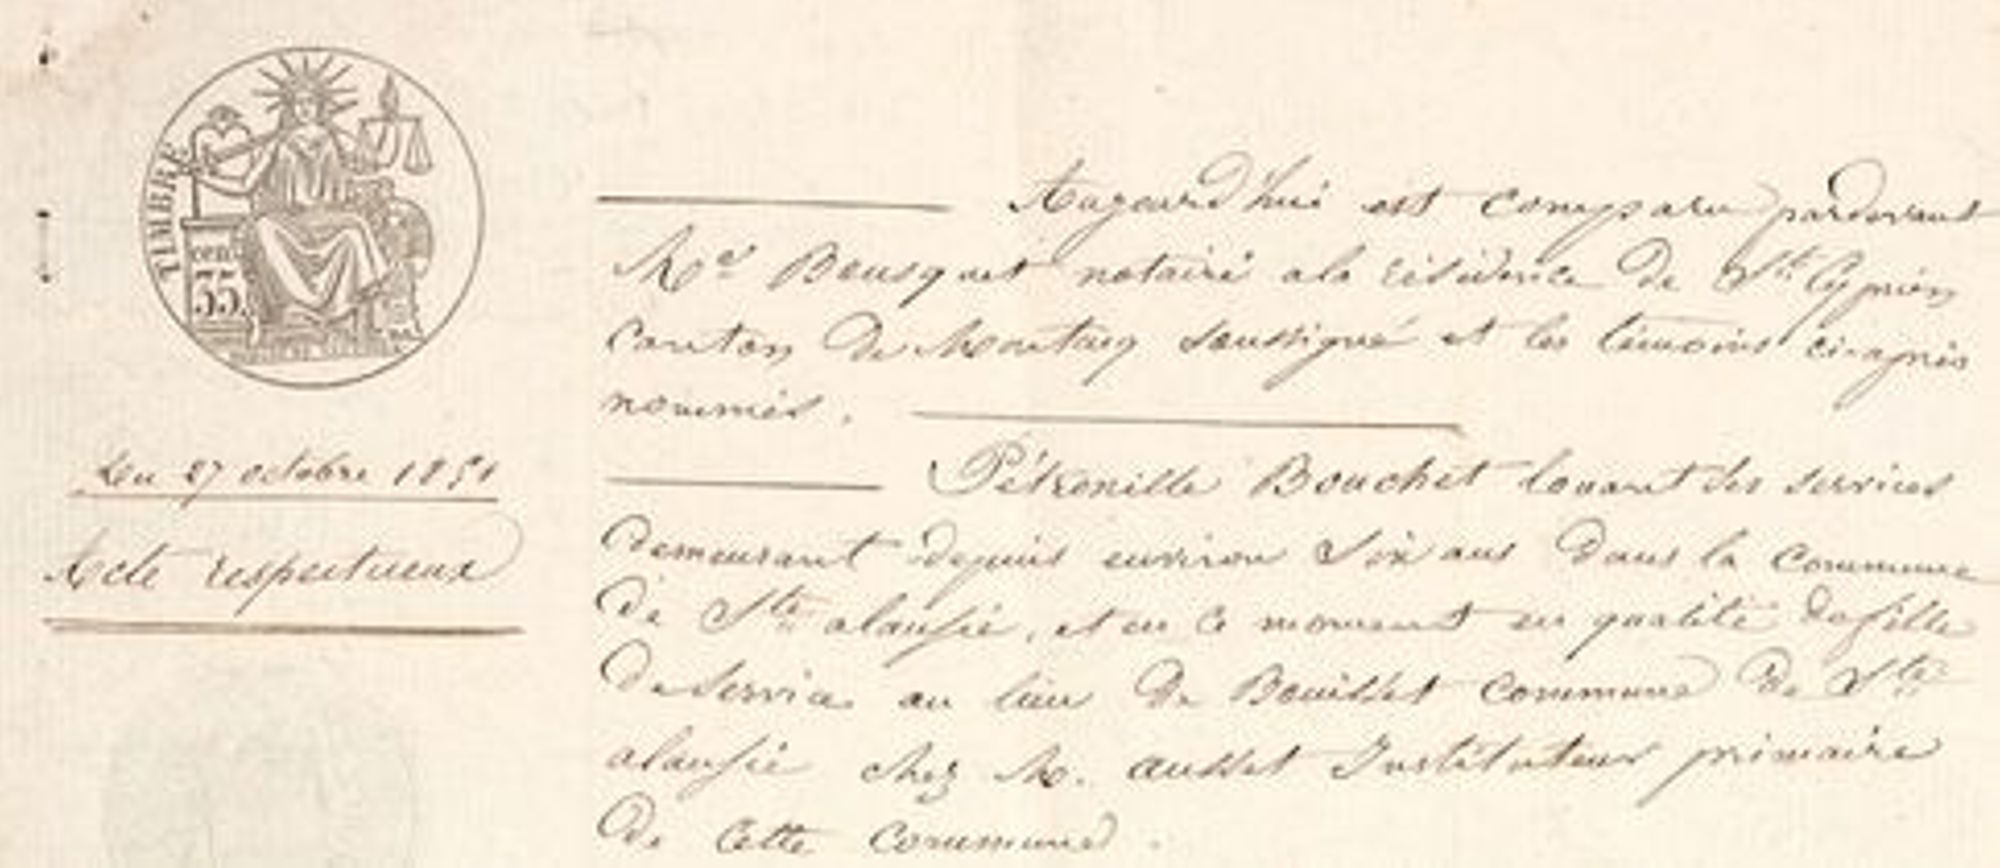 TIMBRE
cen.
35.
Du 27 octobre 1851
Acte respectueux
Aujourd'hui est comparu pardevant
Me Bousquet notaire a la résidence de St Cyprien
Canton de Montcuq soussigné et les témoins ci-après
nommés.
Pétronille Bouchet louant ses services
demeurant depuis environ Six ans dans la commune
de Ste alausie, et en ce moment en qualité de fille
de service au lieu de Bouisset commune de Ste
alausie chez M. Ausset Instituteur primaire
de cette commune.